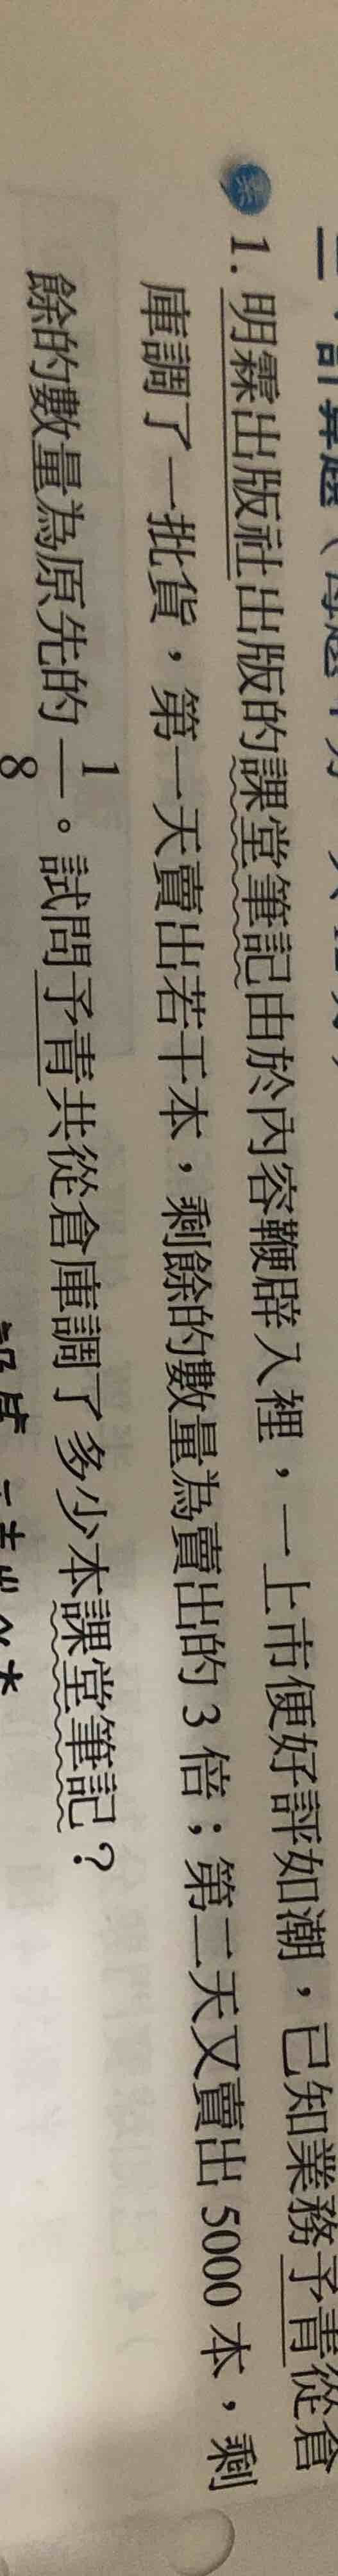 三、計算題（每題
素 1. 明霖出版社出版的課堂筆記由於內容鞭辟入裡，一上市便好評如潮，已知業務予青從倉
庫調了一批貨，第一天賣出若干本，剩餘的數量為賣出的 3 倍；第二天又賣出 5000 本，剩
餘的數量為原先的 1/8。試問予青共從倉庫調了多少本課堂筆記？